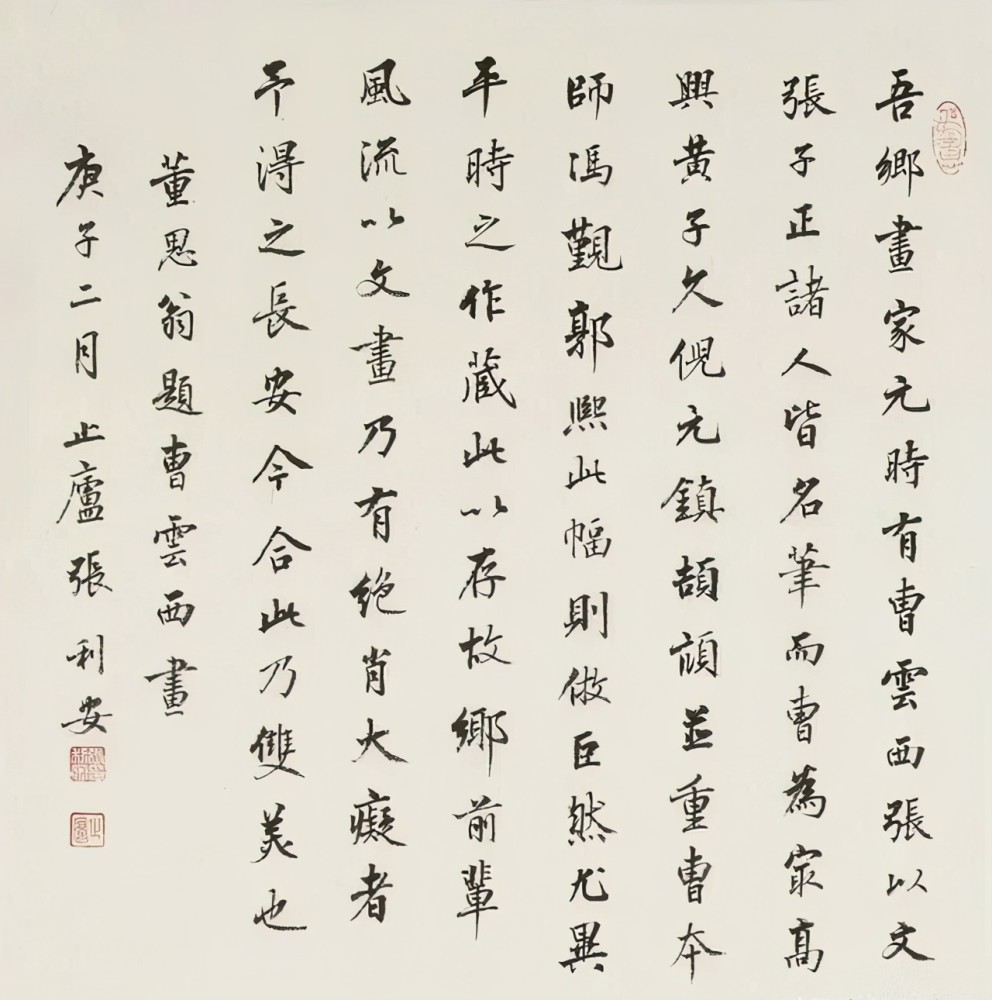 吾鄉畫家元時有曹雲西張以文
張子正諸人皆名筆而曹為冣高
與黃子久倪元鎮頡頏並重曹本
師馮覲郭熙此幅則倣巨然尤異
平時之作藏此以存故鄉前輩
風流以文畫乃有絕肖大癡者
予得之長安今合此乃雙美也
董思翁題曹雲西畫
庚子二月止廬張利安